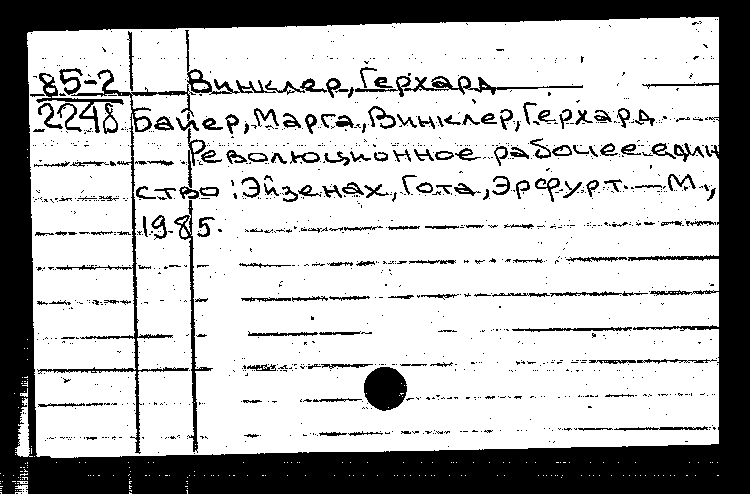 85-2 Винклер, Герхард
2248 Байер, Марга, Винклер, Герхард
Революционное рабочее един
ство: Эйзенах, Гота, Эрфурт. — М.,
1985.